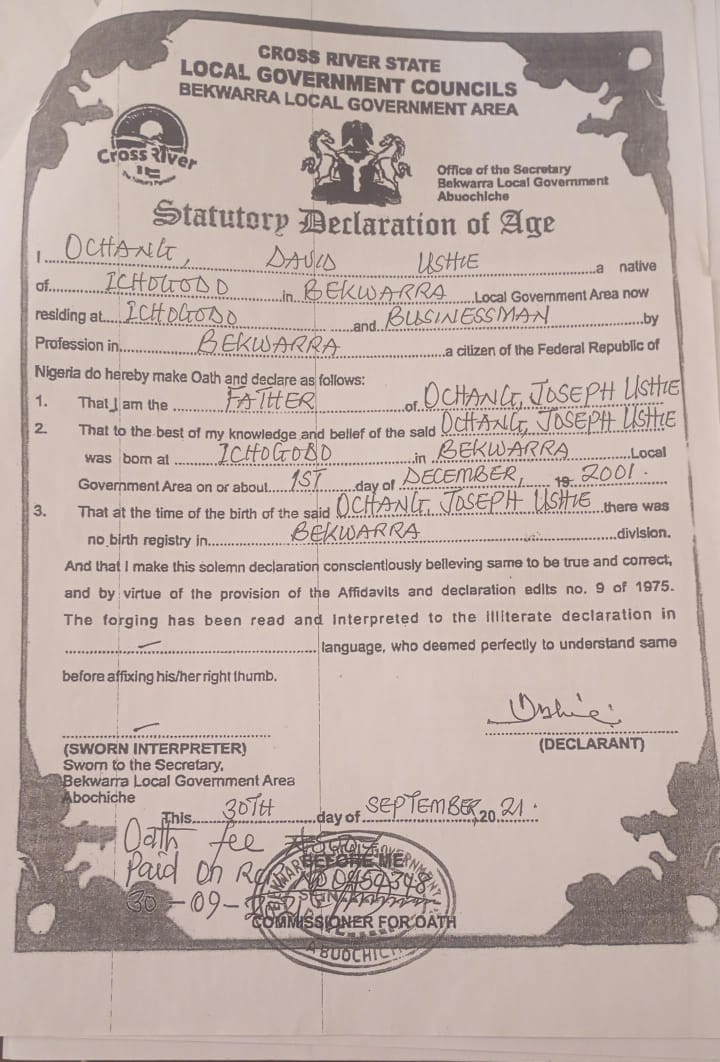 CROSS RIVER STATE
LOCAL GOVERNMENT COUNCILS
BEKWARRA LOCAL GOVERNMENT AREA
Cross River
Office of the Secretary
Bekwarra Local Government
Abuochiche
Statutory Declaration of Age
I OCHANG, DAVID USHIE a native
of ICHOGOBO in BEKWARRA Local Government Area now
residing at ICHOGOBO and BUSINESSMAN by
Profession in BEKWARRA a citizen of the Federal Republic of
Nigeria do hereby make Oath and declare as follows:
1. That I am the FATHER of OCHANG, JOSEPH USHIE
2. That to the best of my knowledge and belief of the said OCHANG, JOSEPH USHIE
was born at ICHOGOBO in BEKWARRA Local
Government Area on or about 1ST day of DECEMBER, 19 2001.
3. That at the time of the birth of the said OCHANG, JOSEPH USHIE there was
no birth registry in BEKWARRA division.
And that I make this solemn declaration conscientiously believing same to be true and correct,
and by virtue of the provision of the Affidavits and declaration edits no. 9 of 1975.
The forging has been read and Interpreted to the illiterate declaration in
language, who deemed perfectly to understand same
before affixing his/her right thumb.
Ushie
(SWORN INTERPRETER)
(DECLARANT)
Sworn to the Secretary,
Bekwarra Local Government Area
Abochiche
This 30TH day of SEPTEMBER, 20 21.
Oath fee
BEFORE ME
Paid on
30-09-
COMMISSIONER FOR OATH
ABUOCHICHE